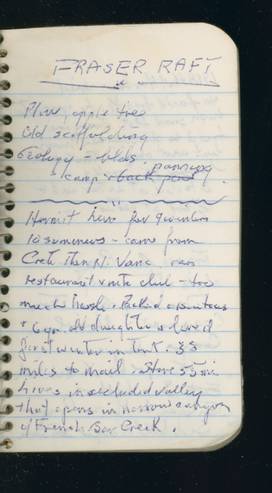 FRASER RAFT
Plum, apple tree
Old scaffolding
Geology - beds
panning
camp
Hermit here for 9 winters
10 summers - came from
Crete then N. Vanc. ran
restaurant & nite club - too
much hassle. Packed
+ 6 yr. old daughter & lived
first winter in tent. 35
miles to mail. Store 55 mi
lives in secluded valley
that opens in narrow canyon
of French Bar Creek.